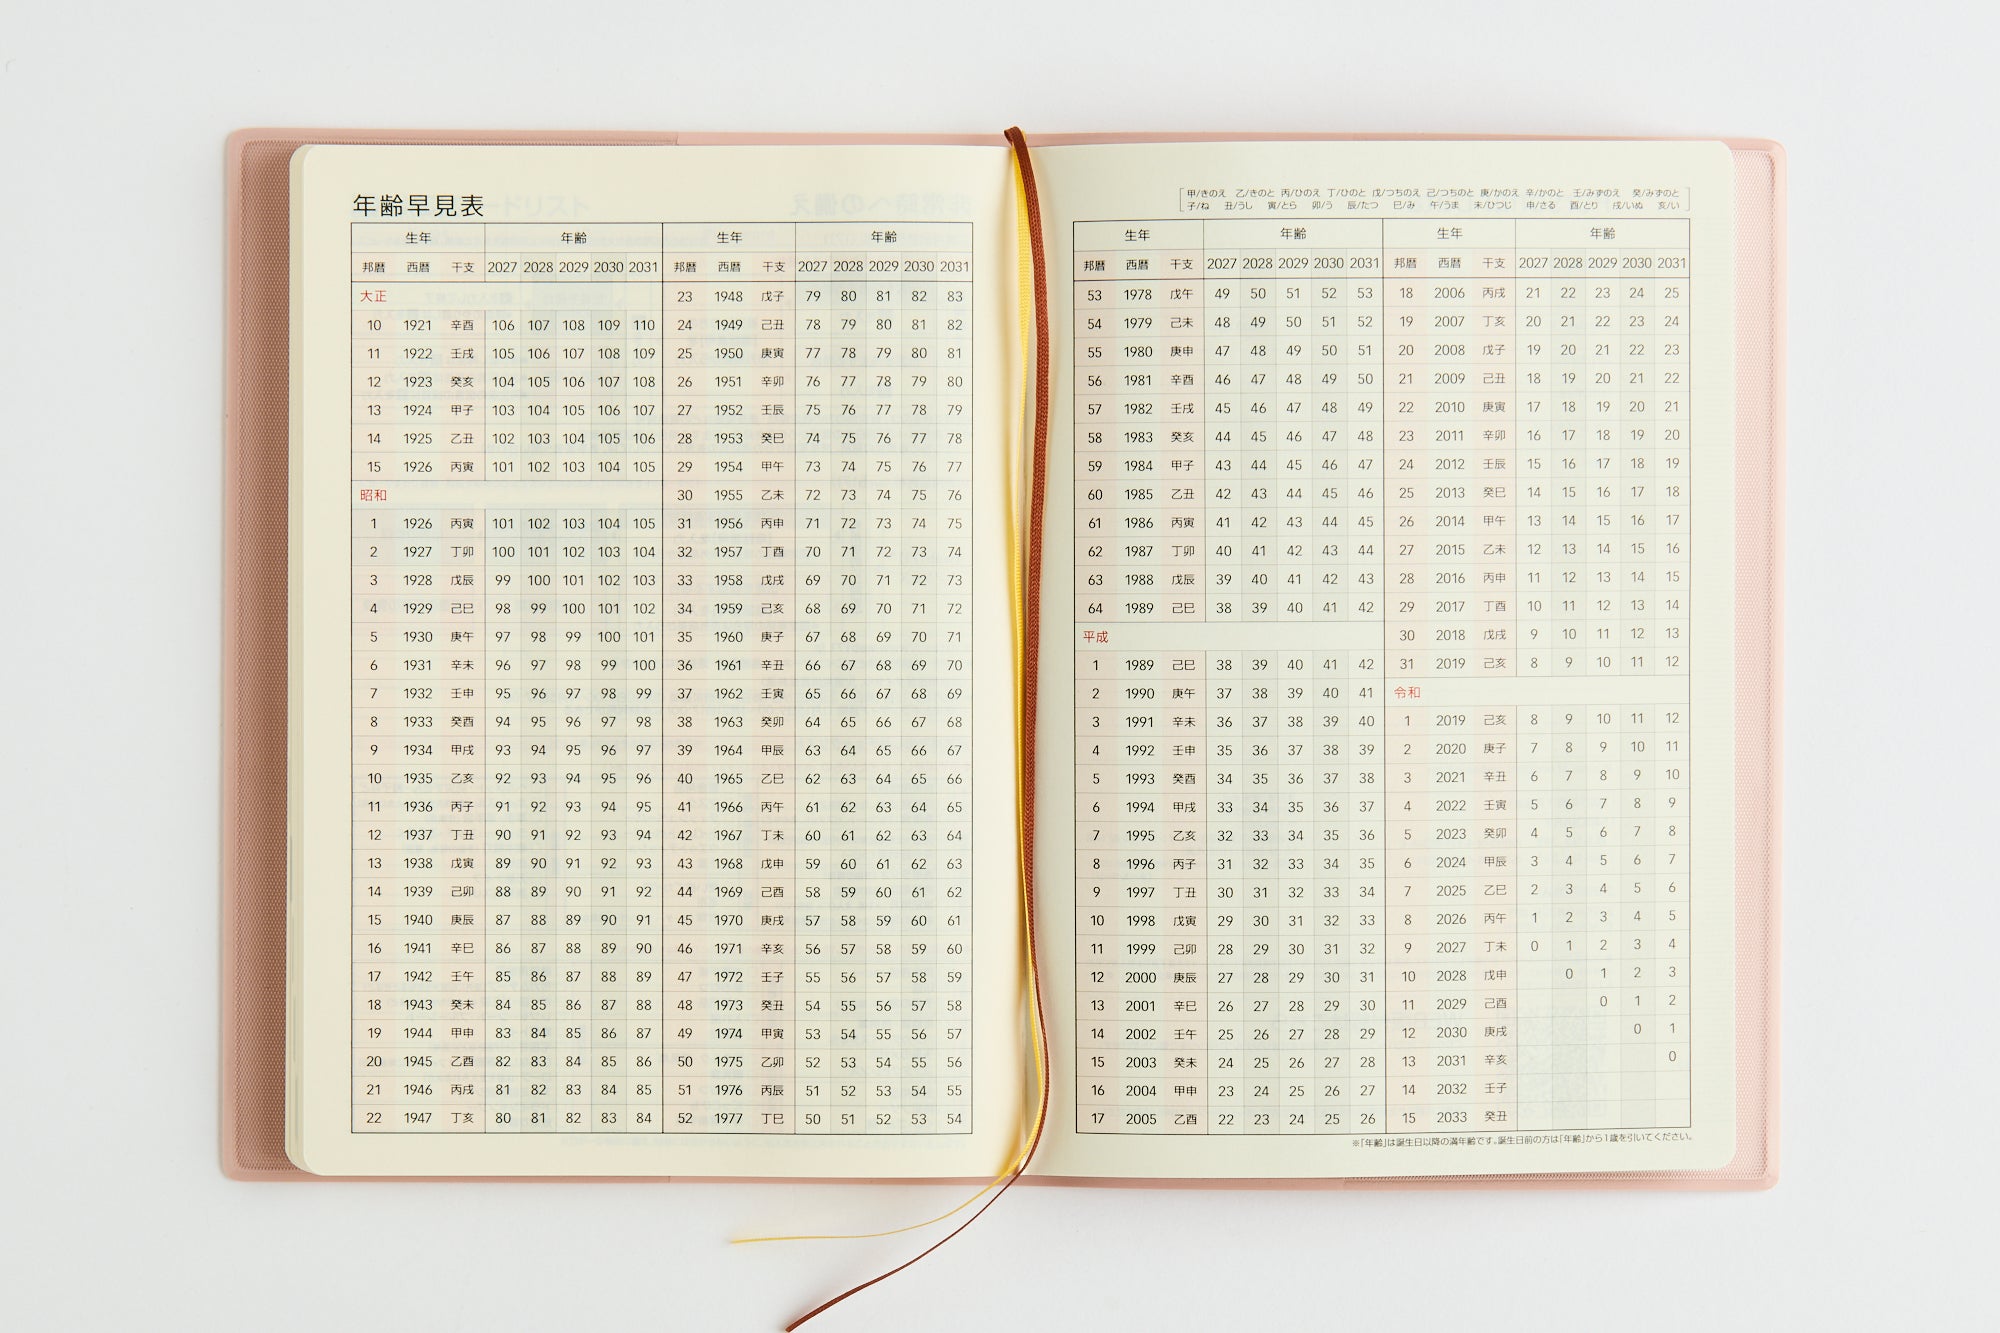 年齢早見表
生年 年齢 生年 年齢
邦暦 西暦 干支 2027 2028 2029 2030 2031 邦暦 西暦 干支 2027 2028 2029 2030 2031
大正 23 1948 戊子 79 80 81 82 83
10 1921 辛酉 106 107 108 109 110 24 1949 己丑 78 79 80 81 82
11 1922 壬戌 105 106 107 108 109 25 1950 庚寅 77 78 79 80 81
12 1923 癸亥 104 105 106 107 108 26 1951 辛卯 76 77 78 79 80
13 1924 甲子 103 104 105 106 107 27 1952 壬辰 75 76 77 78 79
14 1925 乙丑 102 103 104 105 106 28 1953 癸巳 74 75 76 77 78
15 1926 丙寅 101 102 103 104 105 29 1954 甲午 73 74 75 76 77
昭和 30 1955 乙未 72 73 74 75 76
1 1926 丙寅 101 102 103 104 105 31 1956 丙申 71 72 73 74 75
2 1927 丁卯 100 101 102 103 104 32 1957 丁酉 70 71 72 73 74
3 1928 戊辰 99 100 101 102 103 33 1958 戊戌 69 70 71 72 73
4 1929 己巳 98 99 100 101 102 34 1959 己亥 68 69 70 71 72
5 1930 庚午 97 98 99 100 101 35 1960 庚子 67 68 69 70 71
6 1931 辛未 96 97 98 99 100 36 1961 辛丑 66 67 68 69 70
7 1932 壬申 95 96 97 98 99 37 1962 壬寅 65 66 67 68 69
8 1933 癸酉 94 95 96 97 98 38 1963 癸卯 64 65 66 67 68
9 1934 甲戌 93 94 95 96 97 39 1964 甲辰 63 64 65 66 67
10 1935 乙亥 92 93 94 95 96 40 1965 乙巳 62 63 64 65 66
11 1936 丙子 91 92 93 94 95 41 1966 丙午 61 62 63 64 65
12 1937 丁丑 90 91 92 93 94 42 1967 丁未 60 61 62 63 64
13 1938 戊寅 89 90 91 92 93 43 1968 戊申 59 60 61 62 63
14 1939 己卯 88 89 90 91 92 44 1969 己酉 58 59 60 61 62
15 1940 庚辰 87 88 89 90 91 45 1970 庚戌 57 58 59 60 61
16 1941 辛巳 86 87 88 89 90 46 1971 辛亥 56 57 58 59 60
17 1942 壬午 85 86 87 88 89 47 1972 壬子 55 56 57 58 59
18 1943 癸未 84 85 86 87 88 48 1973 癸丑 54 55 56 57 58
19 1944 甲申 83 84 85 86 87 49 1974 甲寅 53 54 55 56 57
20 1945 乙酉 82 83 84 85 86 50 1975 乙卯 52 53 54 55 56
21 1946 丙戌 81 82 83 84 85 51 1976 丙辰 51 52 53 54 55
22 1947 丁亥 80 81 82 83 84 52 1977 丁巳 50 51 52 53 54
甲/きのえ 乙/きのと 丙/ひのえ 丁/ひのと 戊/つちのえ 己/つちのと 庚/かのえ 辛/かのと 壬/みずのえ 癸/みずのと
子/ね 丑/うし 寅/とら 卯/う 辰/たつ 巳/み 午/うま 未/ひつじ 申/さる 酉/とり 戌/いぬ 亥/い
生年 年齢 生年 年齢
邦暦 西暦 干支 2027 2028 2029 2030 2031 邦暦 西暦 干支 2027 2028 2029 2030 2031
53 1978 戊午 49 50 51 52 53 18 2006 丙戌 21 22 23 24 25
54 1979 己未 48 49 50 51 52 19 2007 丁亥 20 21 22 23 24
55 1980 庚申 47 48 49 50 51 20 2008 戊子 19 20 21 22 23
56 1981 辛酉 46 47 48 49 50 21 2009 己丑 18 19 20 21 22
57 1982 壬戌 45 46 47 48 49 22 2010 庚寅 17 18 19 20 21
58 1983 癸亥 44 45 46 47 48 23 2011 辛卯 16 17 18 19 20
59 1984 甲子 43 44 45 46 47 24 2012 壬辰 15 16 17 18 19
60 1985 乙丑 42 43 44 45 46 25 2013 癸巳 14 15 16 17 18
61 1986 丙寅 41 42 43 44 45 26 2014 甲午 13 14 15 16 17
62 1987 丁卯 40 41 42 43 44 27 2015 乙未 12 13 14 15 16
63 1988 戊辰 39 40 41 42 43 28 2016 丙申 11 12 13 14 15
64 1989 己巳 38 39 40 41 42 29 2017 丁酉 10 11 12 13 14
平成 30 2018 戊戌 9 10 11 12 13
1 1989 己巳 38 39 40 41 42 31 2019 己亥 8 9 10 11 12
2 1990 庚午 37 38 39 40 41 令和
3 1991 辛未 36 37 38 39 40 1 2019 己亥 8 9 10 11 12
4 1992 壬申 35 36 37 38 39 2 2020 庚子 7 8 9 10 11
5 1993 癸酉 34 35 36 37 38 3 2021 辛丑 6 7 8 9 10
6 1994 甲戌 33 34 35 36 37 4 2022 壬寅 5 6 7 8 9
7 1995 乙亥 32 33 34 35 36 5 2023 癸卯 4 5 6 7 8
8 1996 丙子 31 32 33 34 35 6 2024 甲辰 3 4 5 6 7
9 1997 丁丑 30 31 32 33 34 7 2025 乙巳 2 3 4 5 6
10 1998 戊寅 29 30 31 32 33 8 2026 丙午 1 2 3 4 5
11 1999 己卯 28 29 30 31 32 9 2027 丁未 0 1 2 3 4
12 2000 庚辰 27 28 29 30 31 10 2028 戊申 0 1 2 3
13 2001 辛巳 26 27 28 29 30 11 2029 己酉 0 1 2
14 2002 壬午 25 26 27 28 29 12 2030 庚戌 0 1
15 2003 癸未 24 25 26 27 28 13 2031 辛亥 0
16 2004 甲申 23 24 25 26 27 14 2032 壬子
17 2005 乙酉 22 23 24 25 26 15 2033 癸丑
※「年齢」は誕生日以降の満年齢です。誕生日前の方は「年齢」から1歳を引いてください。